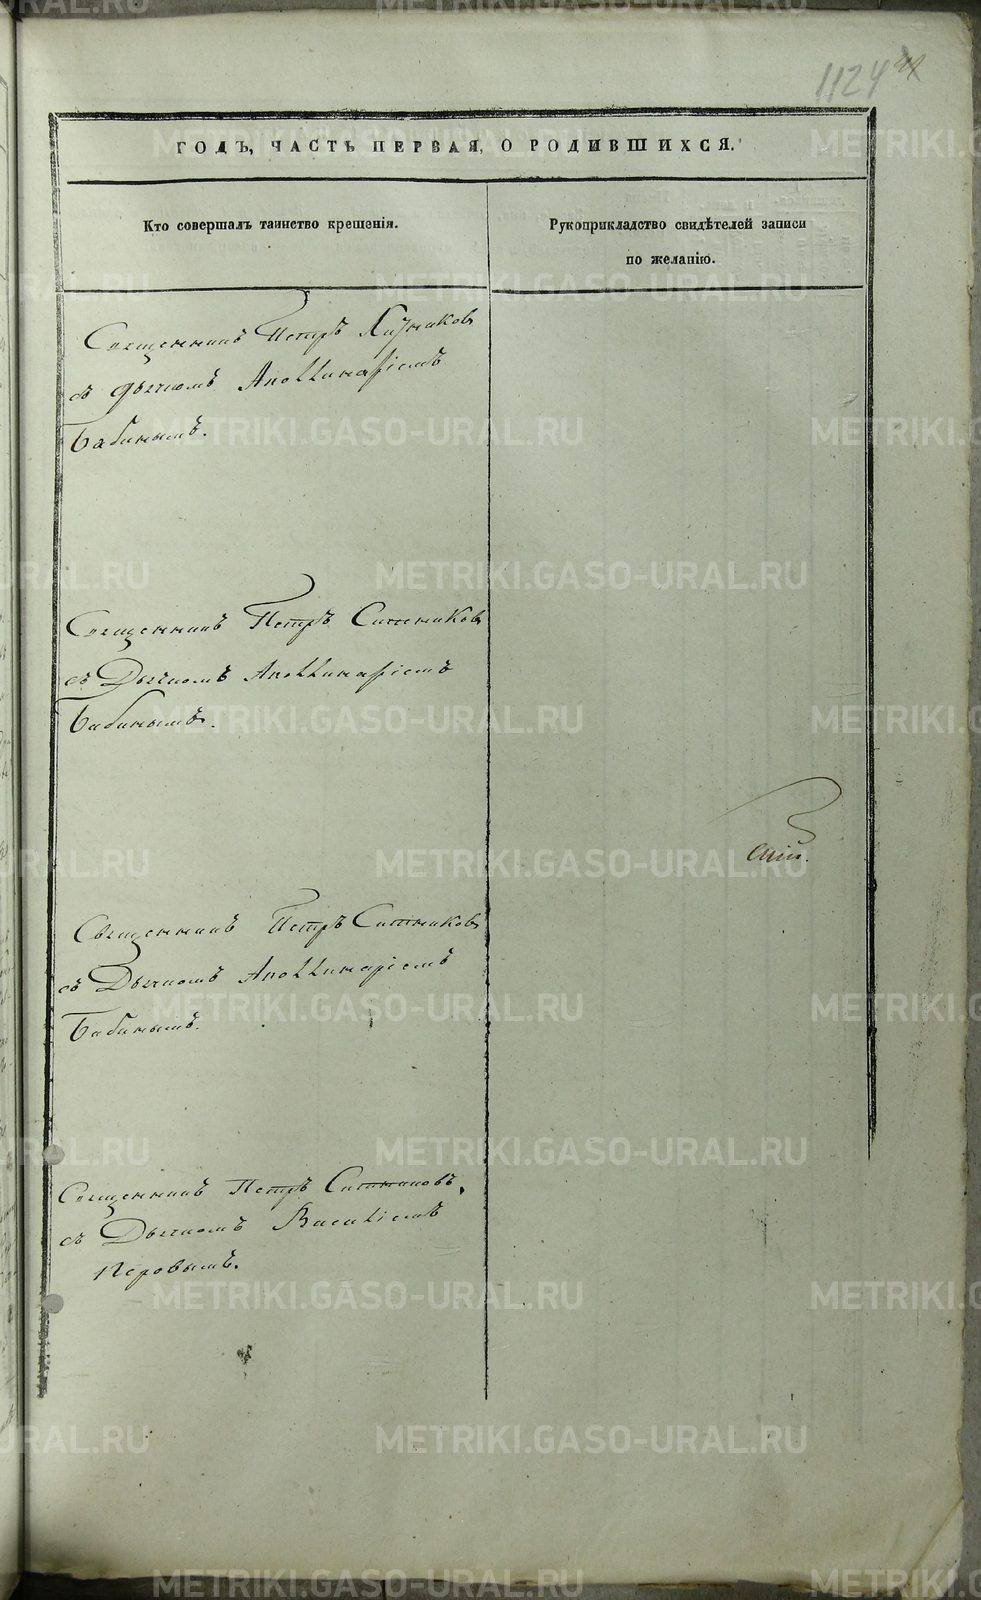 1124
ГОДЪ, ЧАСТЬ ПЕРВАЯ, О РОДИВШИХСЯ.
Кто совершалъ таинство крещенія.
Рукоприкладство свидѣтелей записи
по желанію.
Священникъ Петръ Хизниковъ
съ Дьячкомъ Аполлинаріемъ
Бабинымъ.
Священникъ Петръ Ситниковъ
съ Дьячкомъ Аполлинаріемъ
Бабинымъ.
Священникъ Петръ Ситниковъ
съ Дьячкомъ Аполлинаріемъ
Бабинымъ.
Священникъ Петръ Ситниковъ,
съ Дьячкомъ Василіемъ
Перовымъ.
METRIKI.GASO-URAL.RU